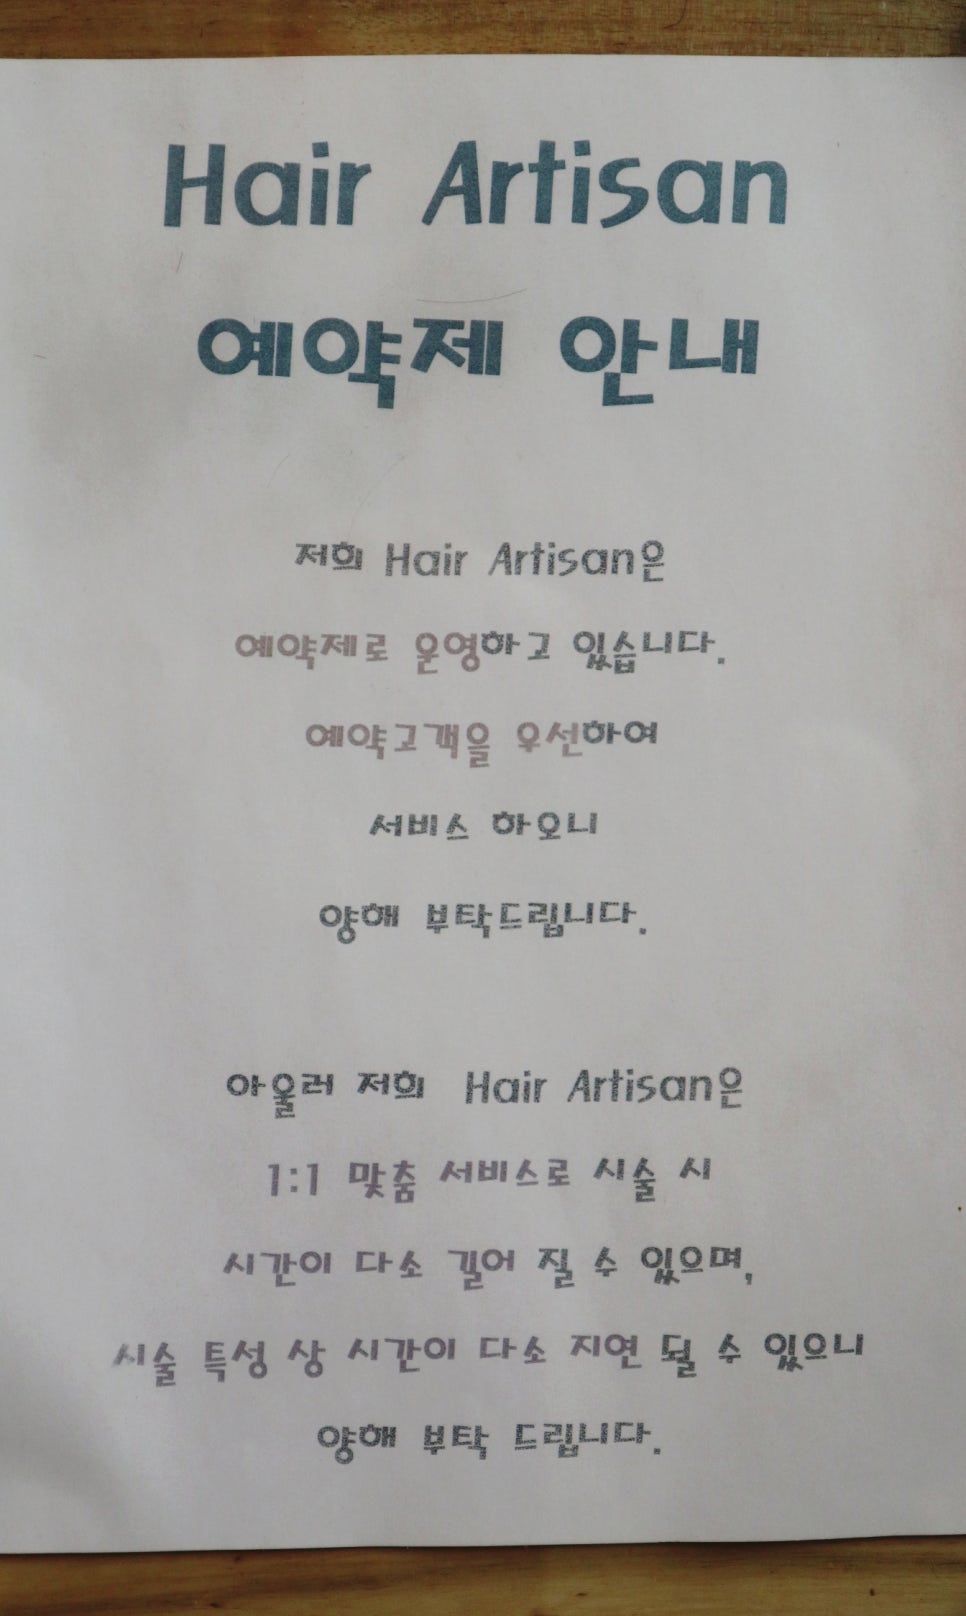 Hair Artisan
예약제 안내
저희 Hair Artisan은
예약제로 운영하고 있습니다.
예약고객을 우선하여
서비스 하오니
양해 부탁드립니다.
아울러 저희 Hair Artisan은
1:1 맞춤 서비스로 시술 시
시간이 다소 길어 질 수 있으며,
시술 특성 상 시간이 다소 지연 될 수 있으니
양해 부탁 드립니다.